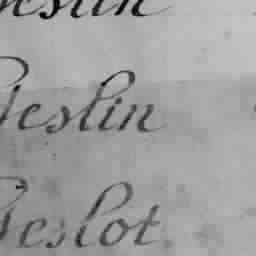 Geslin
Geslin
Geslot